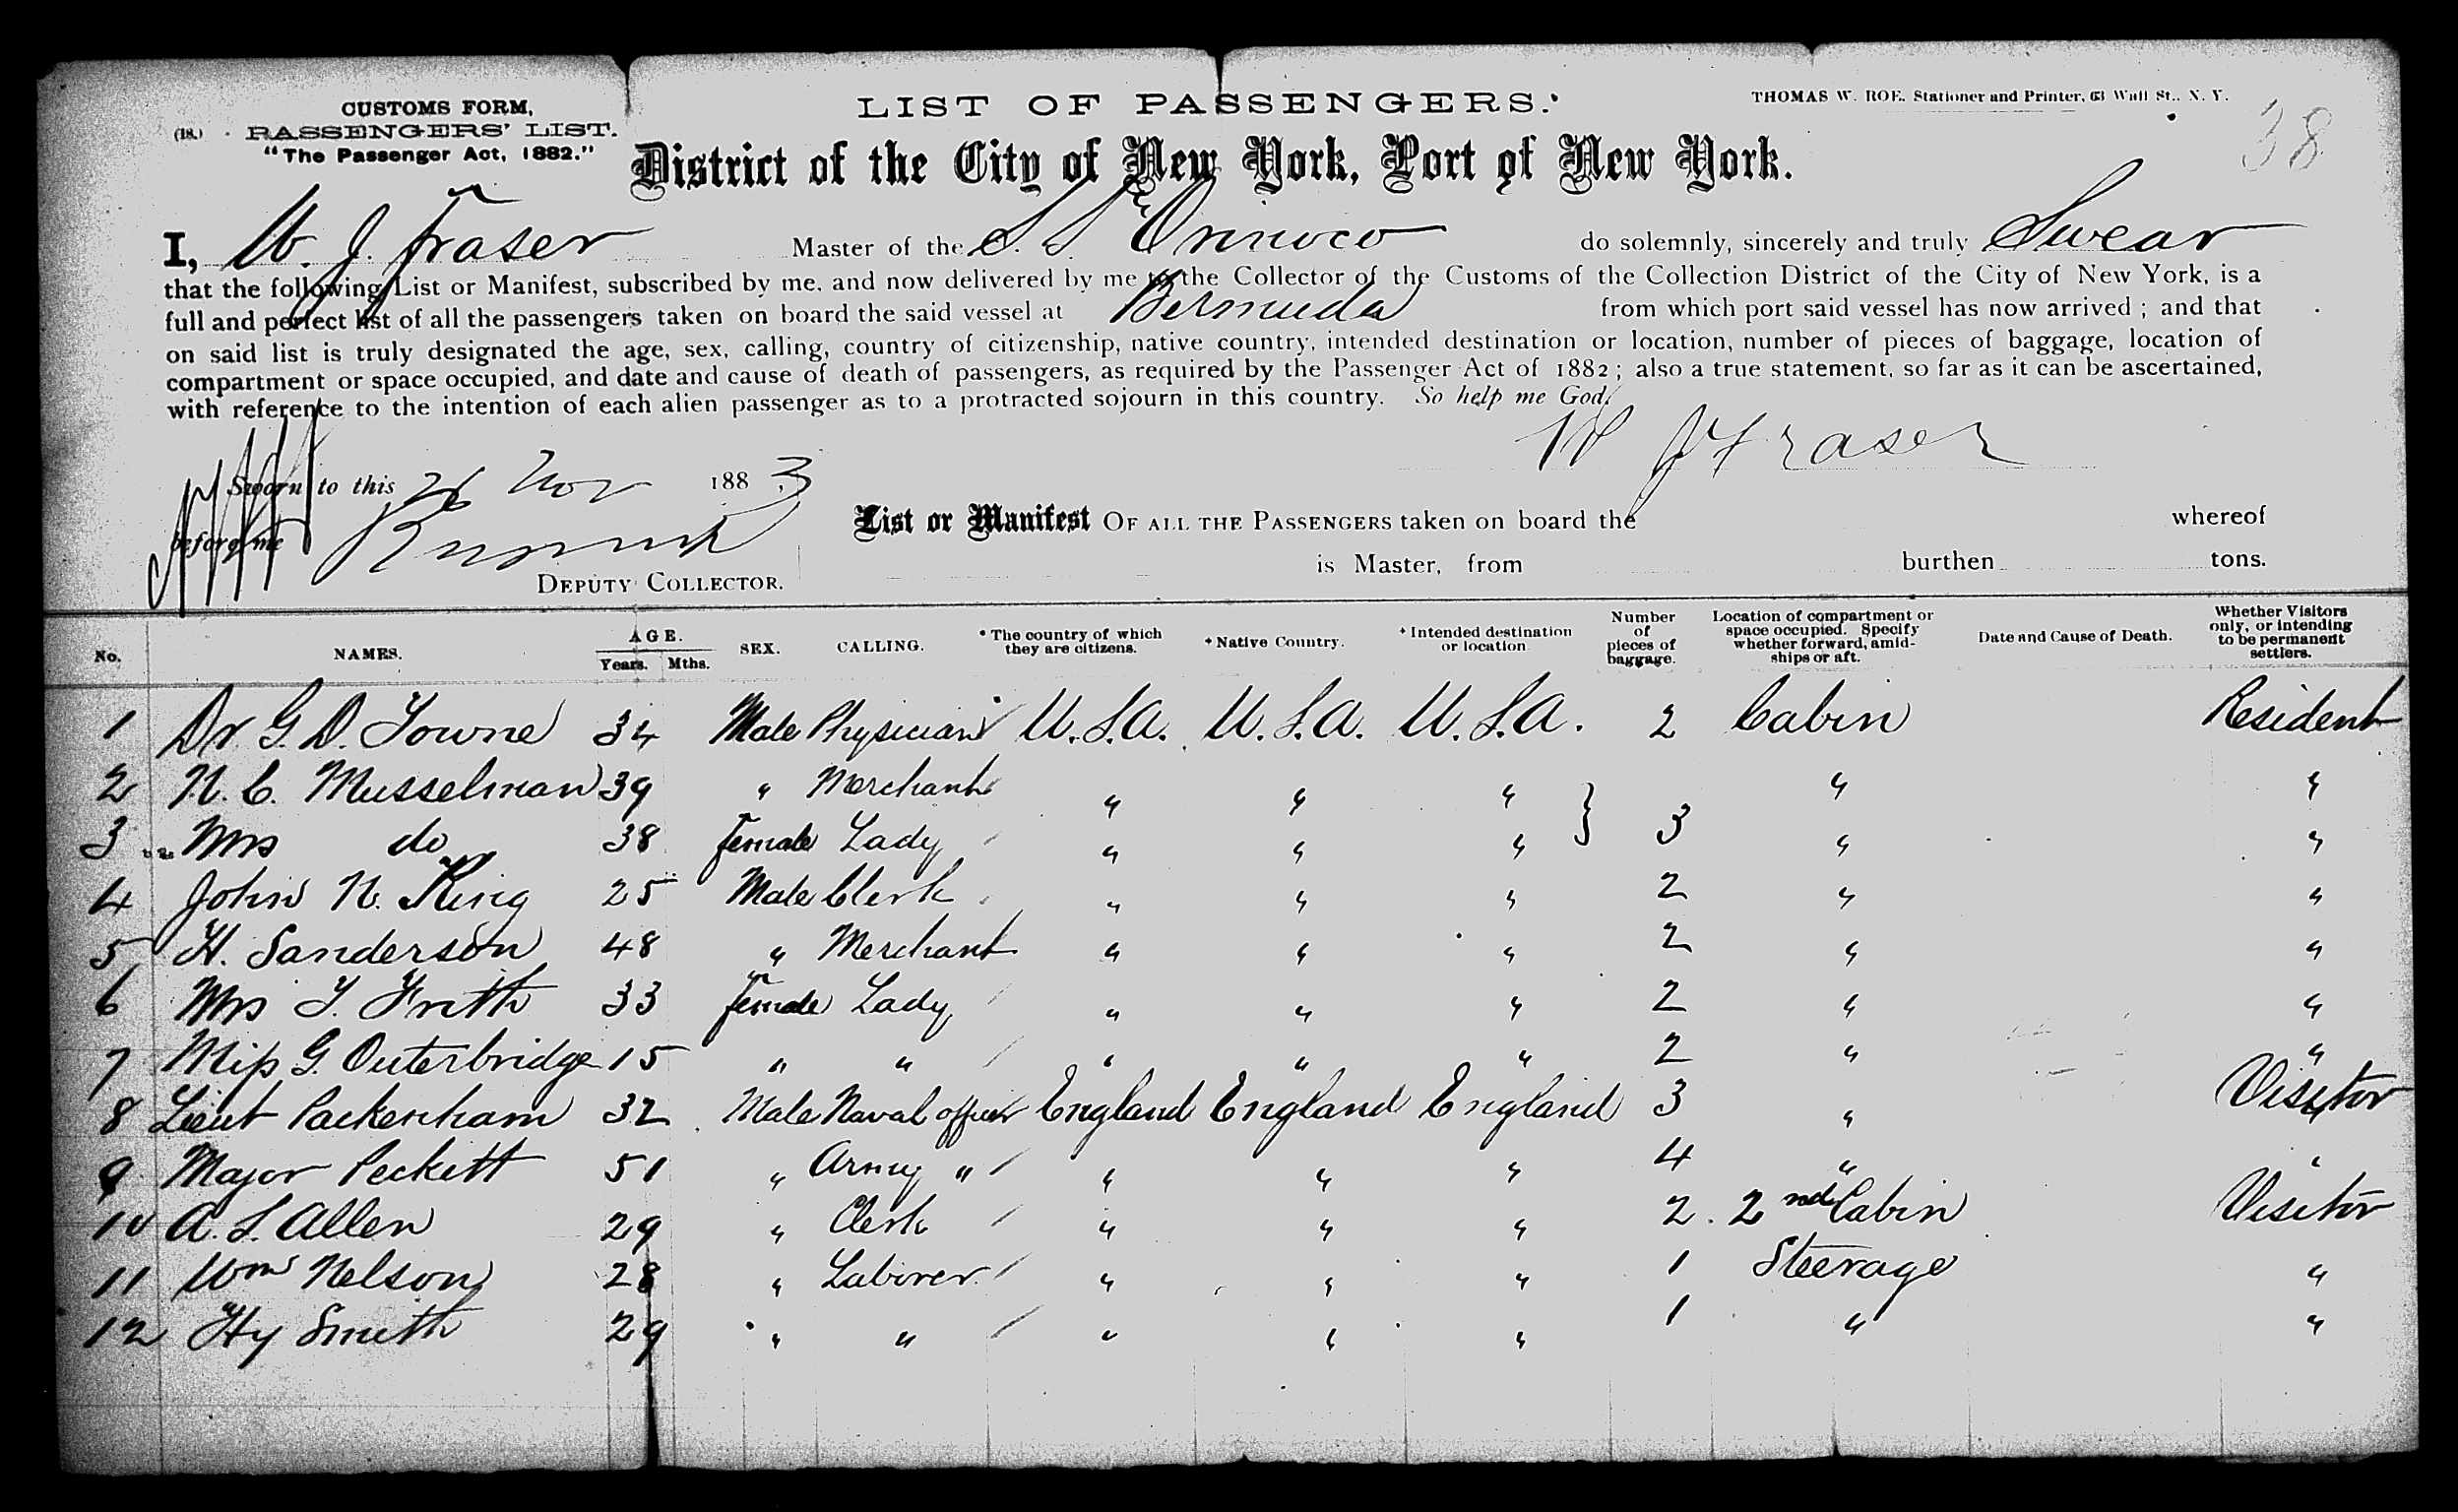 CUSTOMS FORM,
(18.) PASSENGERS' LIST.
"The Passenger Act, 1882."
LIST OF PASSENGERS.
THOMAS W. ROE, Stationer and Printer, 63 Wall St., N. Y.
38
District of the City of New York, Port of New York.
I, W. J. Fraser Master of the S. S. Orinoco do solemnly, sincerely and truly Swear
that the following List or Manifest, subscribed by me, and now delivered by me to the Collector of the Customs of the Collection District of the City of New York, is a
full and perfect list of all the passengers taken on board the said vessel at Bermuda from which port said vessel has now arrived ; and that
on said list is truly designated the age, sex, calling, country of citizenship, native country, intended destination or location, number of pieces of baggage, location of
compartment or space occupied, and date and cause of death of passengers, as required by the Passenger Act of 1882 ; also a true statement, so far as it can be ascertained,
with reference to the intention of each alien passenger as to a protracted sojourn in this country. So help me God.
W J Fraser
Sworn to this 26 Nov 1883
before me
DEPUTY COLLECTOR.
List or Manifest OF ALL THE PASSENGERS taken on board the whereof
is Master, from burthen tons.
No. NAMES. AGE. Years. Mths. SEX. CALLING. * The country of which they are citizens. * Native Country. * Intended destination or location Number of pieces of baggage. Location of compartment or space occupied. Specify whether forward, amidships or aft. Date and Cause of Death. Whether Visitors only, or intending to be permanent settlers.
1 Dr. G. D. Towne 34 Male Physician U.S.A. U.S.A. U.S.A. 2 Cabin Resident
2 N. C. Musselman 39 " Merchant " " " } " "
3 Mrs do 38 female Lady " " " 3 " "
4 John N. King 25 Male Clerk " " " 2 " "
5 H. Sanderson 48 " Merchant " " " 2 " "
6 Mrs T. Frith 33 female Lady " " " 2 " "
7 Miss G. Outerbridge 15 " " " " " 2 " "
8 Lieut Packenham 32 Male Naval officer England England England 3 " Visitor
9 Major Peckett 51 " Army " " " " 4 " "
10 A. S. Allen 29 " Clerk " " " 2 2nd Cabin Visitor
11 Wm Nelson 28 " Laborer " " " 1 Steerage "
12 Hy Smith 29 " " " " " 1 " "